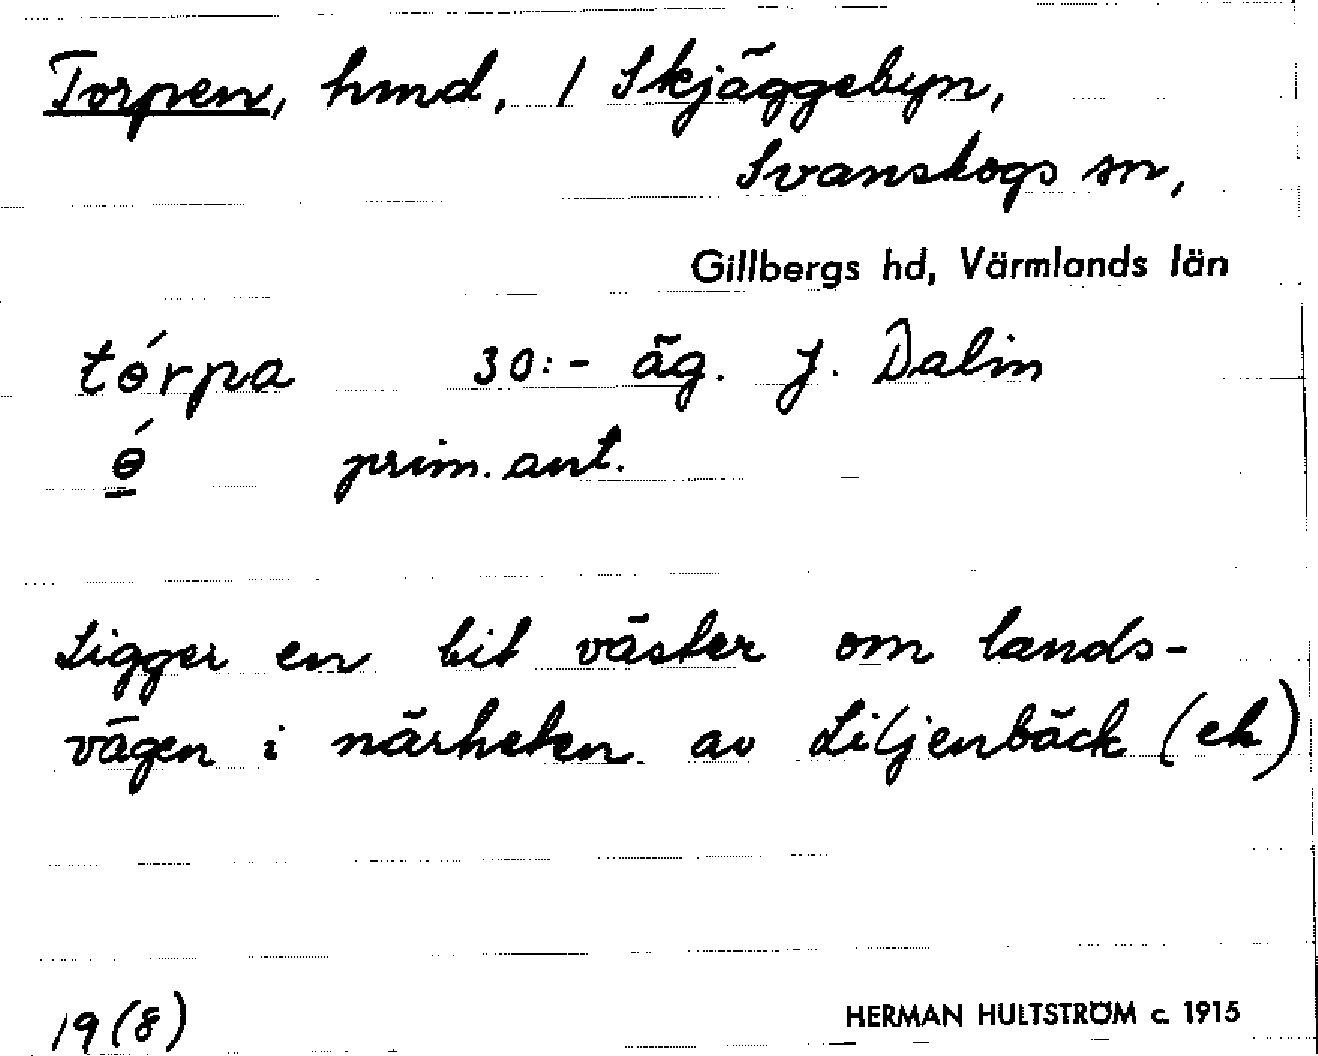 Torpen, hmd, / Skjäggebyn,
Svanskogs sn,
Gillbergs hd, Värmlands län
tɵ́rpa 30:- äg. J. Dalin
ɵ́ prim. ant.
Ligger en bit väster om lands-
vägen i närheten av Liljenbäck (ek)
19(8) HERMAN HULTSTRÖM c. 1915